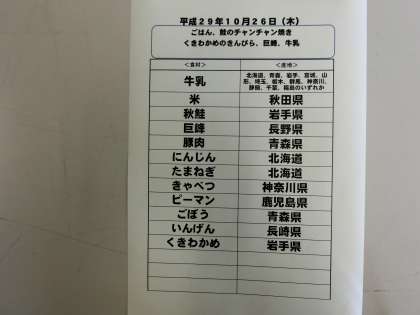 平成29年10月26日（木）
ごはん、鮭のチャンチャン焼き
くきわかめのきんぴら、巨峰、牛乳
＜食材＞ ＜産地＞
牛乳 北海道、青森、岩手、宮城、山形、埼玉、栃木、群馬、神奈川、静岡、千葉、福島のいずれか
米 秋田県
秋鮭 岩手県
巨峰 長野県
豚肉 青森県
にんじん 北海道
たまねぎ 北海道
きゃべつ 神奈川県
ピーマン 鹿児島県
ごぼう 青森県
いんげん 長崎県
くきわかめ 岩手県